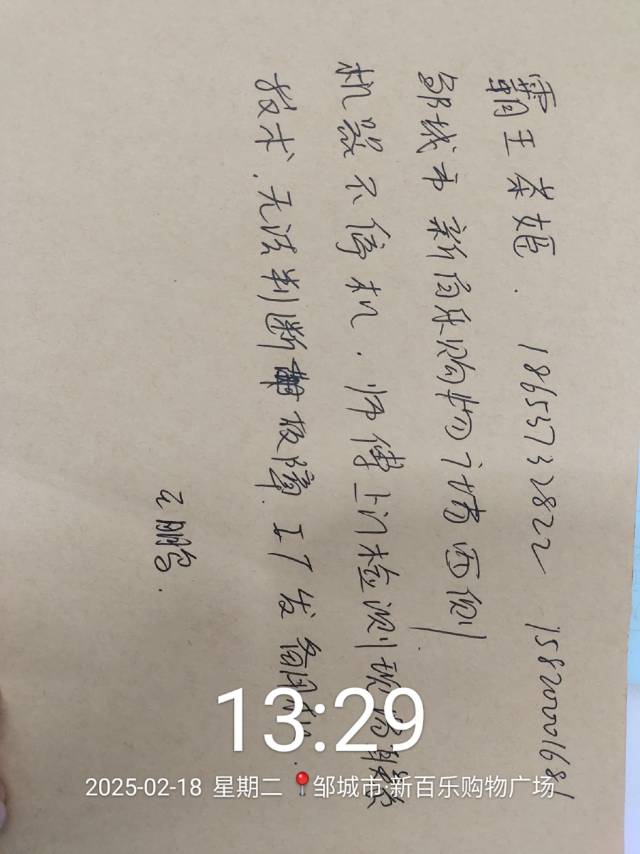 霸王茶姬. 18653732822 15820200168
邹城市新百乐购物广场西侧
机器不停机. 师傅上门检测现场联系
技术.无法判断 故障.工厂发备用机.
王鹏.
13:29
2025-02-18 星期二 邹城市·新百乐购物广场